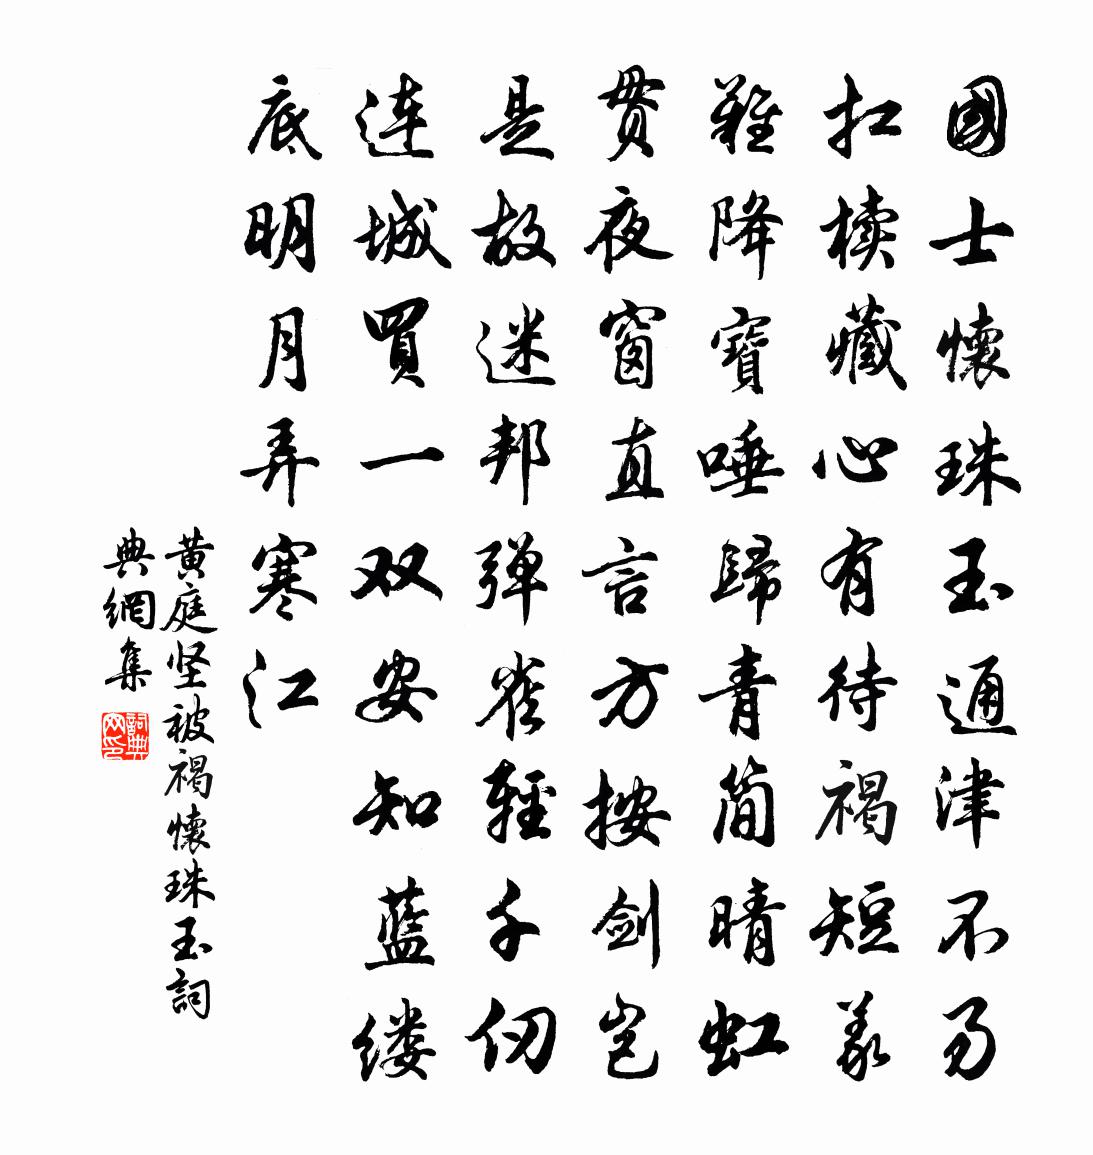 國士懷珠玉通津不易
扛椟藏心有待褐短義
難降寶唾歸青簡晴虹
貫夜窗直言方按劍豈
是故迷邦弹雀輕千仞
連城買一双安知藍缕
底明月弄寒江
黄庭坚被褐懷珠玉詞
典網集
詞典
网印